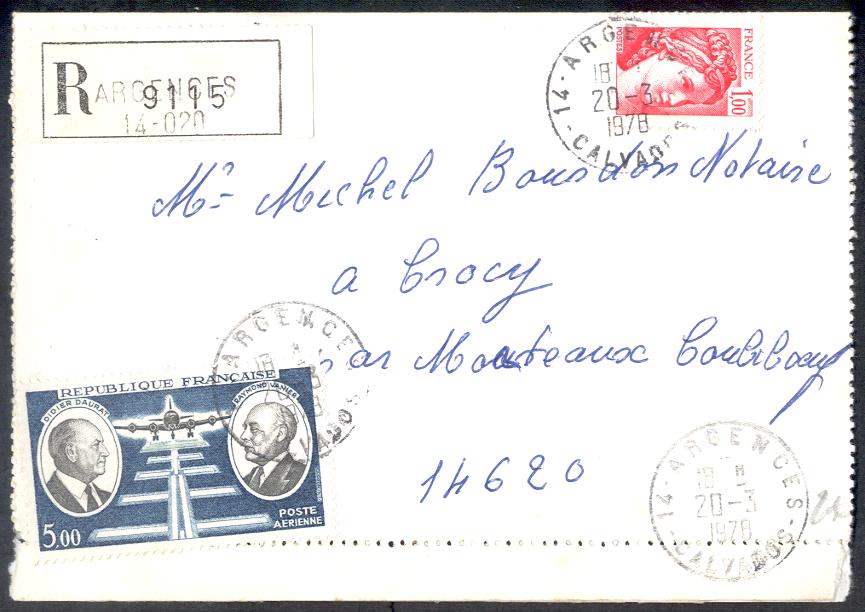 R ARGENCES
9115
14-020
14-ARGENCES
18
20-3
1978
-CALVADOS-
POSTES
FRANCE
1,00
Mr Michel Bourdon Notaire
a Crocy
par Morteaux Coulibœuf
14620
ARGENCES
18
CALVADOS
REPUBLIQUE FRANÇAISE
DIDIER DAURAT
RAYMOND VANIER
POSTE
AERIENNE
5,00
14-ARGENCES-
18
20-3
1978
-CALVADOS-